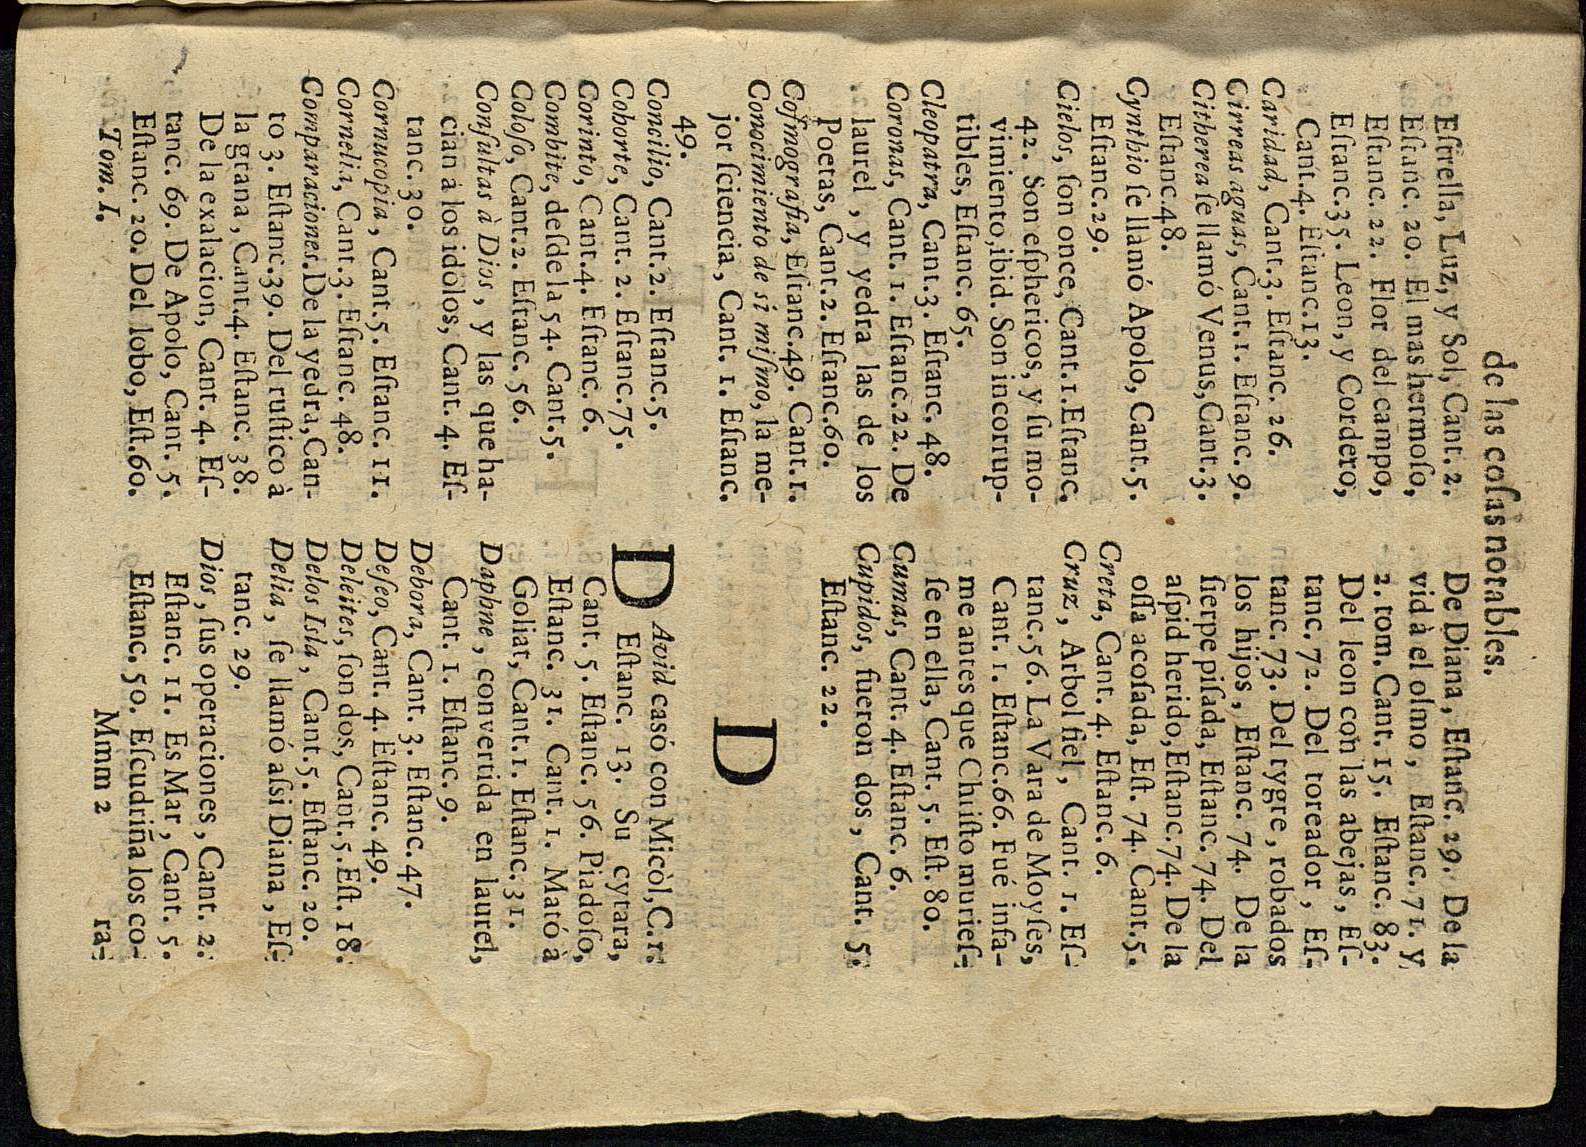 de las coſas notables.
Eſtrella, Luz, y Sol, Cant. 2.
Eſtanc. 20. El mas hermoſo,
Eſtanc. 22. Flor del campo,
Eſtanc. 35. Leon, y Cordero,
Cant. 4. Eſtanc. 13.
Caridad, Cant. 3. Eſtanc. 26.
Cirreas aguas, Cant. 1. Eſtanc. 9.
Citherea ſe llamó Venus, Cant. 3.
Eſtanc. 48.
Cynthio ſe llamó Apolo, Cant. 5.
Eſtanc. 29.
Cielos, ſon once, Cant. 1. Eſtanc.
42. Son eſphericos, y ſu mo-
vimiento, ibid. Son incorrup-
tibles, Eſtanc. 65.
Cleopatra, Cant. 3. Eſtanc. 48.
Coronas, Cant. 1. Eſtanc. 22. De
laurel, y yedra las de los
Poetas, Cant. 2. Eſtanc. 60.
Coſmografia, Eſtanc. 49. Cant. 1.
Conocimiento de sì miſmo, la me-
jor ſciencia, Cant. 1. Eſtanc.
49.
Concilio, Cant. 2. Eſtanc. 5.
Cohorte, Cant. 2. Eſtanc. 75.
Corinto, Cant. 4. Eſtanc. 6.
Combite, deſde la 54. Cant. 5.
Coloſo, Cant. 2. Eſtanc. 56.
Conſultas à Dios, y las que ha-
cian à los idolos, Cant. 4. Eſ-
tanc. 30.
Cornucopia, Cant. 5. Eſtanc. 11.
Cornelia, Cant. 3. Eſtanc. 48.
Comparaciones. De la yedra, Can-
to 3. Eſtanc. 39. Del ruſtico à
la grana, Cant. 4. Eſtanc. 38.
De la exalacion, Cant. 4. Eſ-
tanc. 69. De Apolo, Cant. 5.
Eſtanc. 20. Del lobo, Eſt. 60.
Tom. I.
De Diana, Eſtanc. 29. De la
vid à el olmo, Eſtanc. 71. y
2. tom. Cant. 15. Eſtanc. 83.
Del leon con las abejas, Eſ-
tanc. 72. Del toreador, Eſ-
tanc. 73. Del tygre, robados
los hijos, Eſtanc. 74. De la
ſierpe piſada, Eſtanc. 74. Del
aſpid herido, Eſtanc. 74. De la
oſſa acoſada, Eſt. 74. Cant. 5.
Creta, Cant. 4. Eſtanc. 6.
Cruz, Arbol fiel, Cant. 1. Eſ-
tanc. 56. La Vara de Moyſes,
Cant. 1. Eſtanc. 66. Fué infa-
me antes que Chriſto murieſ-
ſe en ella, Cant. 5. Eſt. 80.
Cumas, Cant. 4. Eſtanc. 6.
Cupidos, fueron dos, Cant. 5.
Eſtanc. 22.
D
DAvid casó con Micòl, C. 1.
Eſtanc. 13. Su cytara,
Cant. 5. Eſtanc. 56. Piadoſo,
Eſtanc. 31. Cant. 1. Mató à
Goliat, Cant. 1. Eſtanc. 31.
Daphne, convertida en laurel,
Cant. 1. Eſtanc. 9.
Debora, Cant. 3. Eſtanc. 47.
Deſeo, Cant. 4. Eſtanc. 49.
Deleites, ſon dos, Cant. 5. Eſt. 18.
Delos Isla, Cant. 5. Eſtanc. 20.
Delia, ſe llamó aſsi Diana, Eſ-
tanc. 29.
Dios, ſus operaciones, Cant. 2.
Eſtanc. 11. Es Mar, Cant. 5.
Eſtanc. 50. Eſcudriña los co-
Mmm 2 ra-